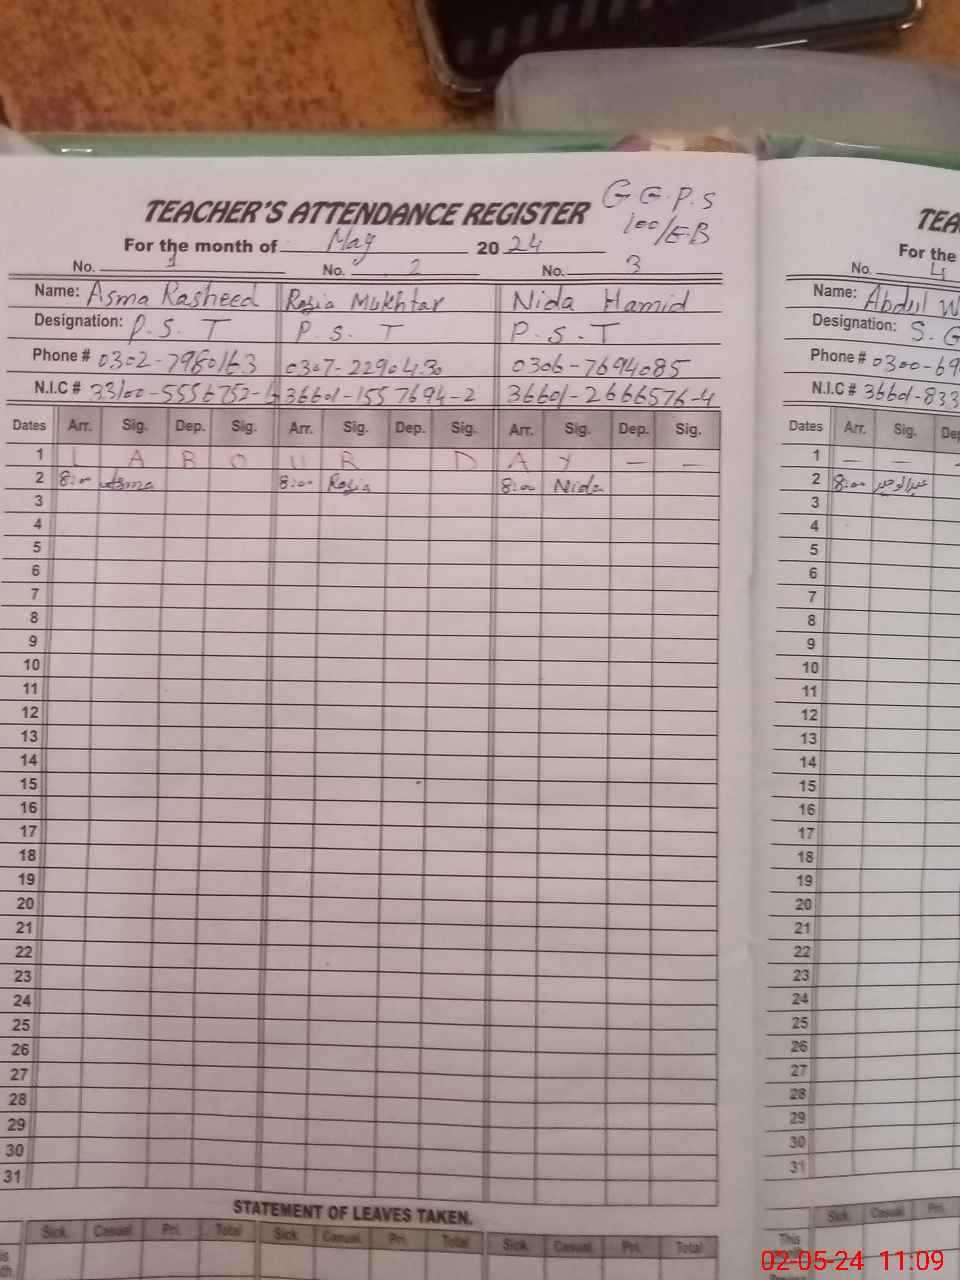 TEACHER'S ATTENDANCE REGISTER G G.P.S
100/EB
For the month of May 2024
No. 1 No. 2 No. 3
Name: Asma Rasheed Razia Mukhtar Nida Hamid
Designation: P.S.T P.S.T P.S.T
Phone # 0302-7980163 0307-2290430 0306-7694085
N.I.C # 33100-5556752-6 36601-1557694-2 36601-2666576-4
Dates Arr. Sig. Dep. Sig. Arr. Sig. Dep. Sig. Arr. Sig. Dep. Sig.
1 L A B O U R D A Y — —
2 8:00 Asma 8:00 Razia 8:00 Nida
3
4
5
6
7
8
9
10
11
12
13
14
15
16
17
18
19
20
21
22
23
24
25
26
27
28
29
30
31
STATEMENT OF LEAVES TAKEN.
Sick. Casual. Pri. Total Sick. Casual. Pri. Total Sick. Casual. Pri. Total
TEA
For the
No. 4
Name: Abdul W
Designation: S.G
Phone # 0300-69
N.I.C # 36601-833
Dates Arr. Sig. Dep
1 — —
2 8:00 عبدالوحید
3
4
5
6
7
8
9
10
11
12
13
14
15
16
17
18
19
20
21
22
23
24
25
26
27
28
29
30
31
Sick. Casual. Pri.
This
02-05-24 11:09